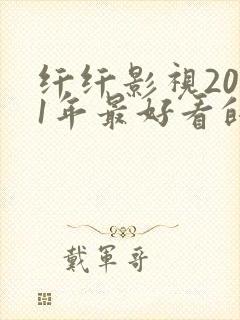 纤纤影視20
1年最好看的
戴軍哥